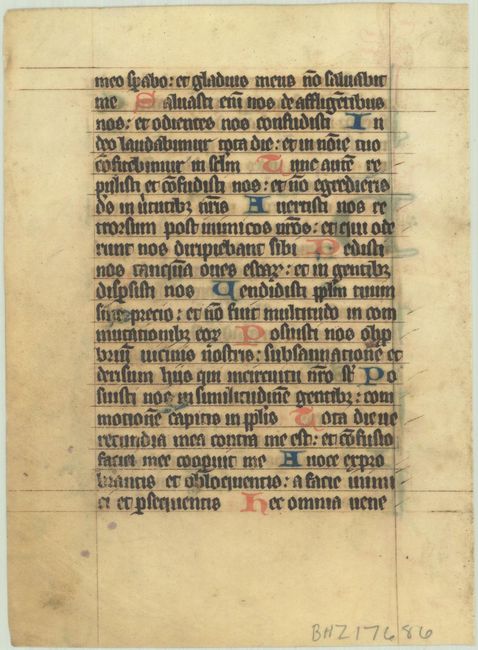 meo sperabo: et gladius meus nō saluabit
me Saluasti eīn nos de affligētibus
nos: et odientes nos confudisti In
deo laudabimur tota die: et in noīe tuo
cōfitebimur in sclm Tunc autē re
pulisti et cōfudisti nos: et nō egredieris
ds in ūtutibꝫ nr̄is Auertisti nos re
trorsum post inimicos nr̄os: et qui ode
runt nos diripiebant sibi Dedisti
nos tanquā oues escaꝝ: et in gentibꝫ
disp̄sisti nos Vendidisti pplm tuum
sine precio: et nō fuit multitudo in com
mutationibꝫ eoꝝ Posuisti nos obp̄
briū uicinis nostris: subsannationē et
derisum hiis qui in circuitu nr̄o st̄ Po
suisti nos in similitudinē gentibꝫ: com
motionē capitis in pplis Tota die ue
recundia mea contra me est: et cōfusio
faciei mee cooꝑuit me A uoce expro
brantis et obloquentis: a facie inimi
ci et ꝑsequentis Hec omnia uene
BHZ17686